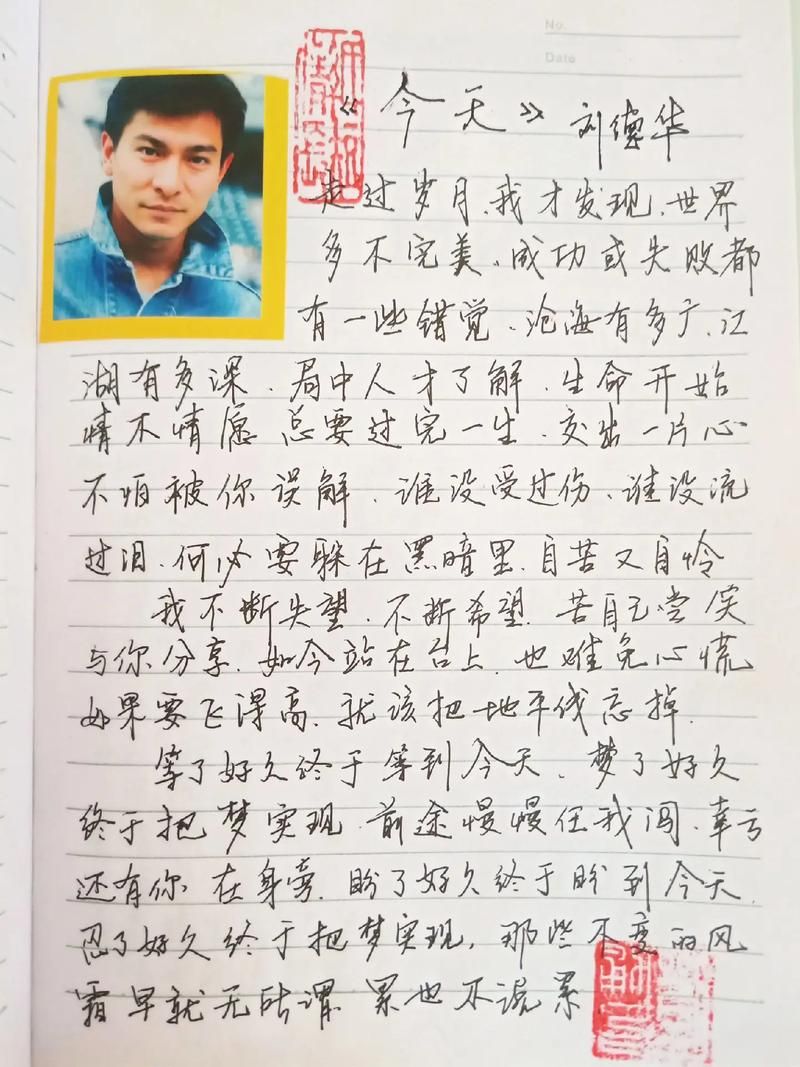 No.
Date
《今天》 刘德华
走过岁月、我才发现、世界
多不完美、成功或失败都
有一些错觉、沧海有多广、江
湖有多深、局中人才了解、生命开始
情不情愿 总要过完一生、交出一片心
不怕被你误解、谁没受过伤、谁没流
过泪、何必要躲在黑暗里、自苦又自怜
我不断失望、不断希望、苦自己尝 笑
与你分享、如今站在台上、也难免心慌
如果要飞得高、就该把地平线忘掉、
等了好久终于等到今天、梦了好久
终于把梦实现、前途慢慢任我闯、幸亏
还有你在身旁、盼了好久终于盼到今天
忍了好久终于把梦实现，那些不变的风
霜早就无所谓、累也不说累